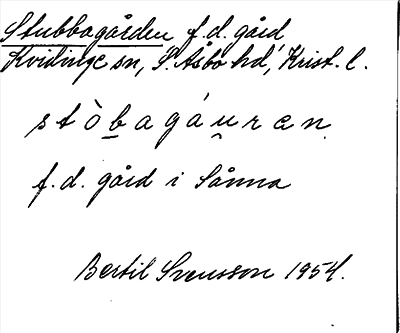 Stubbagården f.d. gård
Kvidinge sn, S. Åsbo hd, Krist. l.
stòbagáuren
f.d. gård i Sånna
Bertil Svensson 1954.